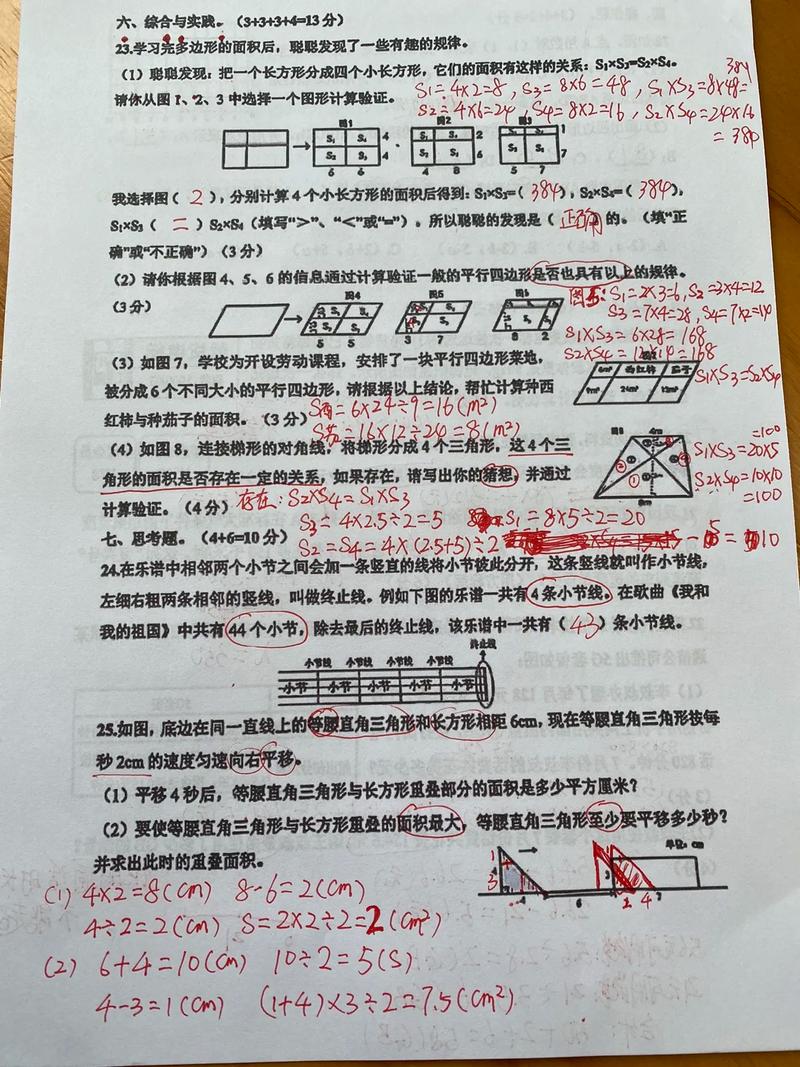 六、综合与实践。（3+3+3+4=13 分）
23.学习完多边形的面积后，聪聪发现了一些有趣的规律。
（1）聪聪发现：把一个长方形分成四个小长方形，它们的面积有这样的关系：S₁×S₃=S₂×S₄。
请你从图 1、2、3 中选择一个图形计算验证。
S₁=4×2=8，S₃=8×6=48，S₁×S₃=8×48=384
S₂=4×6=24，S₄=8×2=16，S₂×S₄=24×16=384
图1 图2 图3
S₁ S₄ 4 S₁ S₄ 2 1
S₂ S₃ 4 S₂ S₃ 6 S₂ S₃ 7
6 6 4 8 5 7
我选择图（ 2 ），分别计算 4 个小长方形的面积后得到：S₁×S₃=（ 384 ），S₂×S₄=（ 384 ），
S₁×S₃（ = ）S₂×S₄（填写“>”、“<”或“=”）。所以聪聪的发现是（ 正确 ）的。（填“正
确”或“不正确”）（3 分）
（2）请你根据图 4、5、6 的信息通过计算验证一般的平行四边形是否也具有以上的规律。
（3 分）
图5：S₁=2×3=6，S₂=3×4=12
S₃=7×4=28，S₄=7×2=14
S₁×S₃=6×28=168
S₂×S₄=12×14=168
图4 图5 图6
5 5 3 7 8 2
（3）如图 7，学校为开设劳动课程，安排了一块平行四边形菜地，
被分成 6 个不同大小的平行四边形，请根据以上结论，帮忙计算种西
红柿与种茄子的面积。（3 分）
S西=6×24÷9=16(m²)
S茄=16×12÷24=8(m²)
6m² 西红柿 茄子
9m² 24m² 12m²
S₁×S₃=S₂×S₄
（4）如图 8，连接梯形的对角线，将梯形分成 4 个三角形，这 4 个三
角形的面积是否存在一定的关系，如果存在，请写出你的猜想，并通过
计算验证。（4 分）
存在：S₂×S₄=S₁×S₃
S₃=4×2.5÷2=5 S₁=8×5÷2=20
S₂=S₄=4×(2.5+5)÷2-5=10
图8 4m
8m
S₁×S₃=20×5=100
S₂×S₄=10×10=100
七、思考题。（4+6=10 分）
24.在乐谱中相邻两个小节之间会加一条竖直的线将小节彼此分开，这条竖线就叫作小节线，
左细右粗两条相邻的竖线，叫做终止线。例如下图的乐谱一共有 4 条小节线。在歌曲《我和
我的祖国》中共有 44 个小节，除去最后的终止线，该乐谱中一共有（ 43 ）条小节线。
终止线
小节线 小节线 小节线 小节线
小节 小节 小节 小节 小节
25.如图，底边在同一直线上的等腰直角三角形和长方形相距 6cm，现在等腰直角三角形按每
秒 2cm 的速度匀速向右平移。
（1）平移 4 秒后，等腰直角三角形与长方形重叠部分的面积是多少平方厘米？
（2）要使等腰直角三角形与长方形重叠的面积最大，等腰直角三角形至少要平移多少秒？
并求出此时的重叠面积。
单位：cm
1 3 4 6 3 1 4 7
(1) 4×2=8(cm) 8-6=2(cm)
4÷2=2(cm) S=2×2÷2=2(cm²)
(2) 6+4=10(cm) 10÷2=5(s)
4-3=1(cm) (1+4)×3÷2=7.5(cm²)